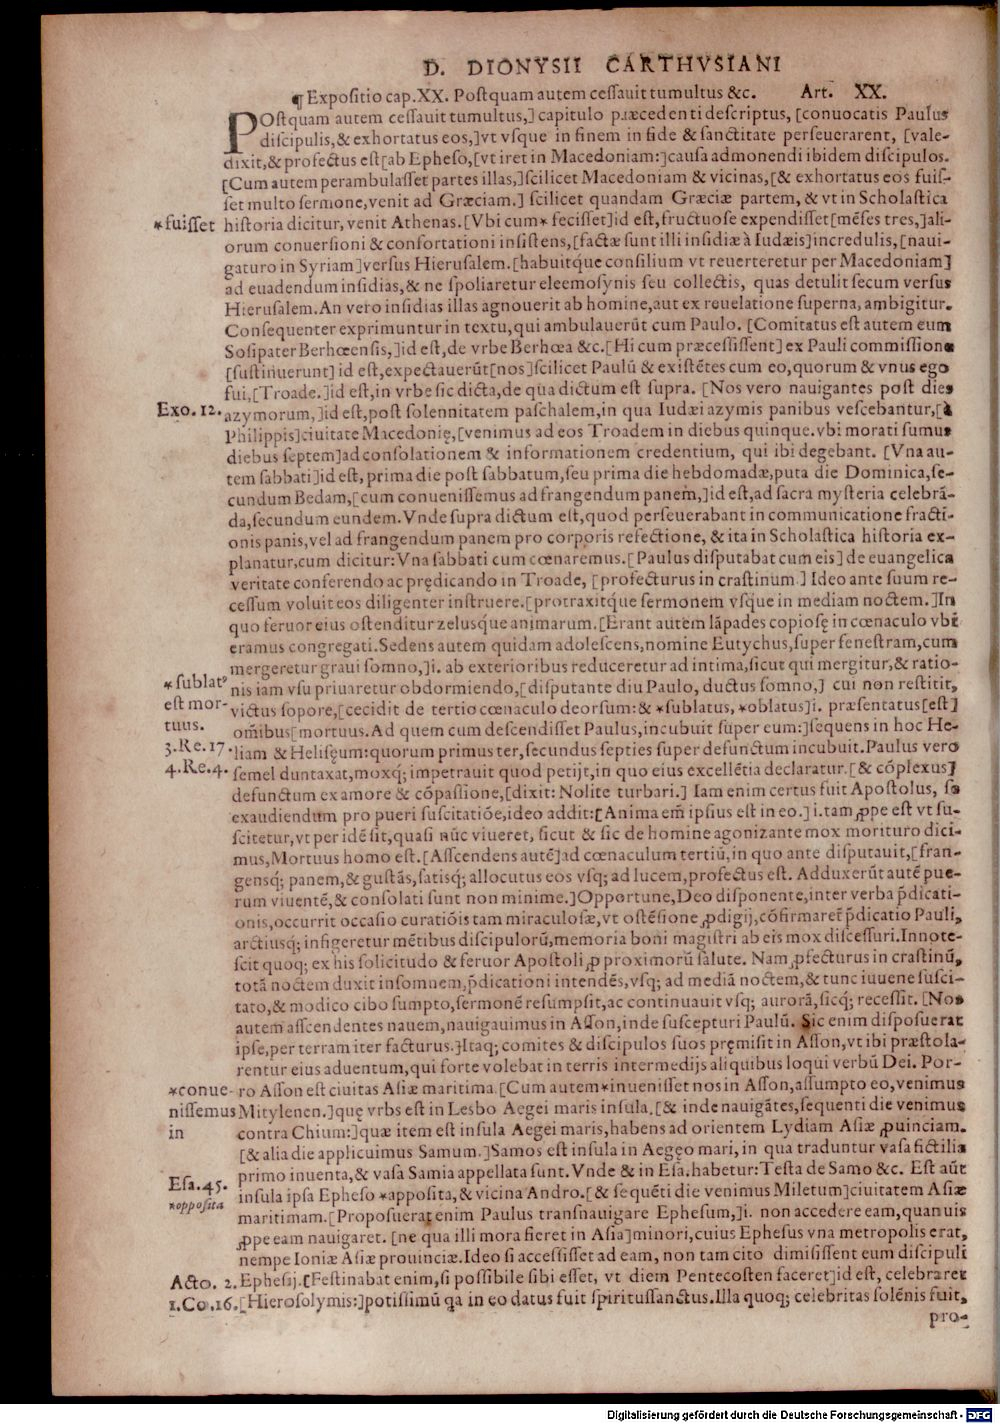 D. DIONYSII CARTHVSIANI
¶ Expositio cap.XX. Postquam autem cessauit tumultus &c. Art. XX.
POstquam autem cessauit tumultus,] capitulo præcedenti descriptus, [conuocatis Paulus
discipulis,& exhortatus eos,]vt vsque in finem in fide & sanctitate perseuerarent, [vale-
dixit,& profectus est[ab Epheso,[vt iret in Macedoniam:]causa admonendi ibidem discipulos.
[Cum autem perambulasset partes illas,]scilicet Macedoniam & vicinas,[& exhortatus eos fuis-
set multo sermone,venit ad Græciam.] scilicet quandam Græciæ partem, & vt in Scholastica
*fuisset historia dicitur, venit Athenas.[Vbi cum* fecisset]id est,fructuose expendisset[mēses tres,]ali-
orum conuersioni & consortationi insistens,[factæ sunt illi insidiæ à Iudæis]incredulis,[naui-
gaturo in Syriam]versus Hierusalem.[habuitq́ue consilium vt reuerteretur per Macedoniam]
ad euadendum insidias,& ne spoliaretur eleemosynis seu collectis, quas detulit secum versus
Hierusalem.An vero insidias illas agnouerit ab homine,aut ex reuelatione superna, ambigitur.
Consequenter exprimuntur in textu,qui ambulauerūt cum Paulo. [Comitatus est autem eum
Sosipater Berhœensis,]id est,de vrbe Berhœa &c.[Hi cum præcessissent] ex Pauli commissione
[sustinuerunt] id est,expectauerūt[nos]scilicet Paulū & existētes cum eo,quorum & vnus ego
fui,[Troade.]id est,in vrbe sic dicta,de qua dictum est supra. [Nos vero nauigantes post dies
Exo. 12. azymorum,]id est,post solennitatem paschalem,in qua Iudæi azymis panibus vescebantur,[à
Philippis]ciuitate Macedonię,[venimus ad eos Troadem in diebus quinque.vbi morati sumus
diebus septem]ad consolationem & informationem credentium, qui ibi degebant. [Vna au-
tem sabbati]id est, prima die post sabbatum,seu prima die hebdomadæ,puta die Dominica,se-
cundum Bedam,[cum conuenissemus ad frangendum panem,]id est,ad sacra mysteria celebrā-
da,secundum eundem.Vnde supra dictum est,quod perseuerabant in communicatione fracti-
onis panis,vel ad frangendum panem pro corporis refectione, & ita in Scholastica historia ex-
planatur,cum dicitur: Vna sabbati cum cœnaremus.[Paulus disputabat cum eis] de euangelica
veritate conferendo ac prędicando in Troade, [profecturus in crastinum.] Ideo ante suum re-
cessum voluit eos diligenter instruere.[protraxitq́ue sermonem vsque in mediam noctem.]In
quo feruor eius ostenditur zelusque animarum.[Erant autem lāpades copiosę in cœnaculo vbi
eramus congregati.Sedens autem quidam adolescens,nomine Eutychus,super fenestram,cum
mergeretur graui somno,]i. ab exterioribus reduceretur ad intima,sicut qui mergitur,& ratio-
*sublatꝰ nis iam vsu priuaretur obdormiendo,[disputante diu Paulo, ductus somno,] cui non restitit,
est mor- victus sopore,[cecidit de tertio cœnaculo deorsum: & *sublatus, *oblatus]i. præsentatus[est]
tuus. om̄ibus[mortuus.Ad quem cum descendisset Paulus,incubuit super eum:]sequens in hoc He-
3.Re.17. liam & Helisęum:quorum primus ter,secundus septies super defunctum incubuit.Paulus vero
4.Re.4. semel duntaxat,moxq́; impetrauit quod petijt,in quo eius excellētia declaratur.[& cōplexus]
defunctum ex amore & cōpassione,[dixit: Nolite turbari.] Iam enim certus fuit Apostolus, se
exaudiendum pro pueri suscitatiōe,ideo addit:[Anima em̄ ipsius est in eo.] i.tam ꝓpe est vt su-
scitetur,vt per idē sit,quasi nūc viueret, sicut & sic de homine agonizante mox morituro dici-
mus,Mortuus homo est.[Ascendens autē]ad cœnaculum tertiū,in quo ante disputauit,[fran-
gensq́; panem,& gustās,satisq́; allocutus eos vsq; ad lucem,profectus est. Adduxerūt autē pue-
rum viuentē,& consolati sunt non minime.]Opportune,Deo disponente,inter verba p̄dicati-
onis,occurrit occasio curatiōis tam miraculosæ,vt ostēsione ꝓdigij,cōfirmaret̄ p̄dicatio Pauli,
arctiusq́; infigeretur mētibus discipulorū,memoria boni magistri ab eis mox discessuri.Innote-
scit quoq; ex his solicitudo & feruor Apostoli ꝓ proximorū salute. Nam ꝓfecturus in crastinū,
totā noctem duxit insomnem,p̄dicationi intendēs,vsq; ad mediā noctem,& tunc iuuene susci-
tato,& modico cibo sumpto,sermonē resumpsit,ac continuauit vsq; aurorā,sicq́; recessit. [Nos
autem ascendentes nauem,nauigauimus in Asson,inde suscepturi Paulū. Sic enim disposuerat
ipse,per terram iter facturus.]Itaq; comites & discipulos suos pręmisit in Asson,vt ibi præstola-
rentur eius aduentum,qui forte volebat in terris intermedijs aliquibus loqui verbū Dei. Por-
*conue- ro Asson est ciuitas Asiæ maritima.[Cum autem*inuenisset nos in Asson,assumpto eo,venimus
nissemus Mitylenen.]quę vrbs est in Lesbo Aegei maris insula.[& inde nauigātes,sequenti die venimus
in contra Chium:]quæ item est insula Aegei maris,habens ad orientem Lydiam Asiæ ꝓuinciam.
[& alia die applicuimus Samum.]Samos est insula in Aegęo mari, in qua traduntur vasa fictilia
primo inuenta,& vasa Samia appellata sunt.Vnde & in Esa.habetur:Testa de Samo &c. Est aūt
Esa.45. insula ipsa Epheso *apposita,& vicina Andro.[& sequēti die venimus Miletum]ciuitatem Asiæ
*opposita maritimam.[Proposuerat enim Paulus transnauigare Ephesum,]i. non accedere eam,quanuis
ꝓpe eam nauigaret. [ne qua illi mora fieret in Asia]minori,cuius Ephesus vna metropolis erat,
nempe Ioniæ Asiæ prouinciæ.Ideo si accessisset ad eam, non tam cito dimisissent eum discipuli
Acto. 2. Ephesij.[Festinabat enim,si possibile sibi esset, vt diem Pentecosten faceret]id est, celebraret
1.Co.16. [Hierosolymis:]potissimū qa in eo datus fuit spiritussanctus.Illa quoq; celebritas solēnis fuit,
pro-
Digitalisierung gefördert durch die Deutsche Forschungsgemeinschaft - DFG